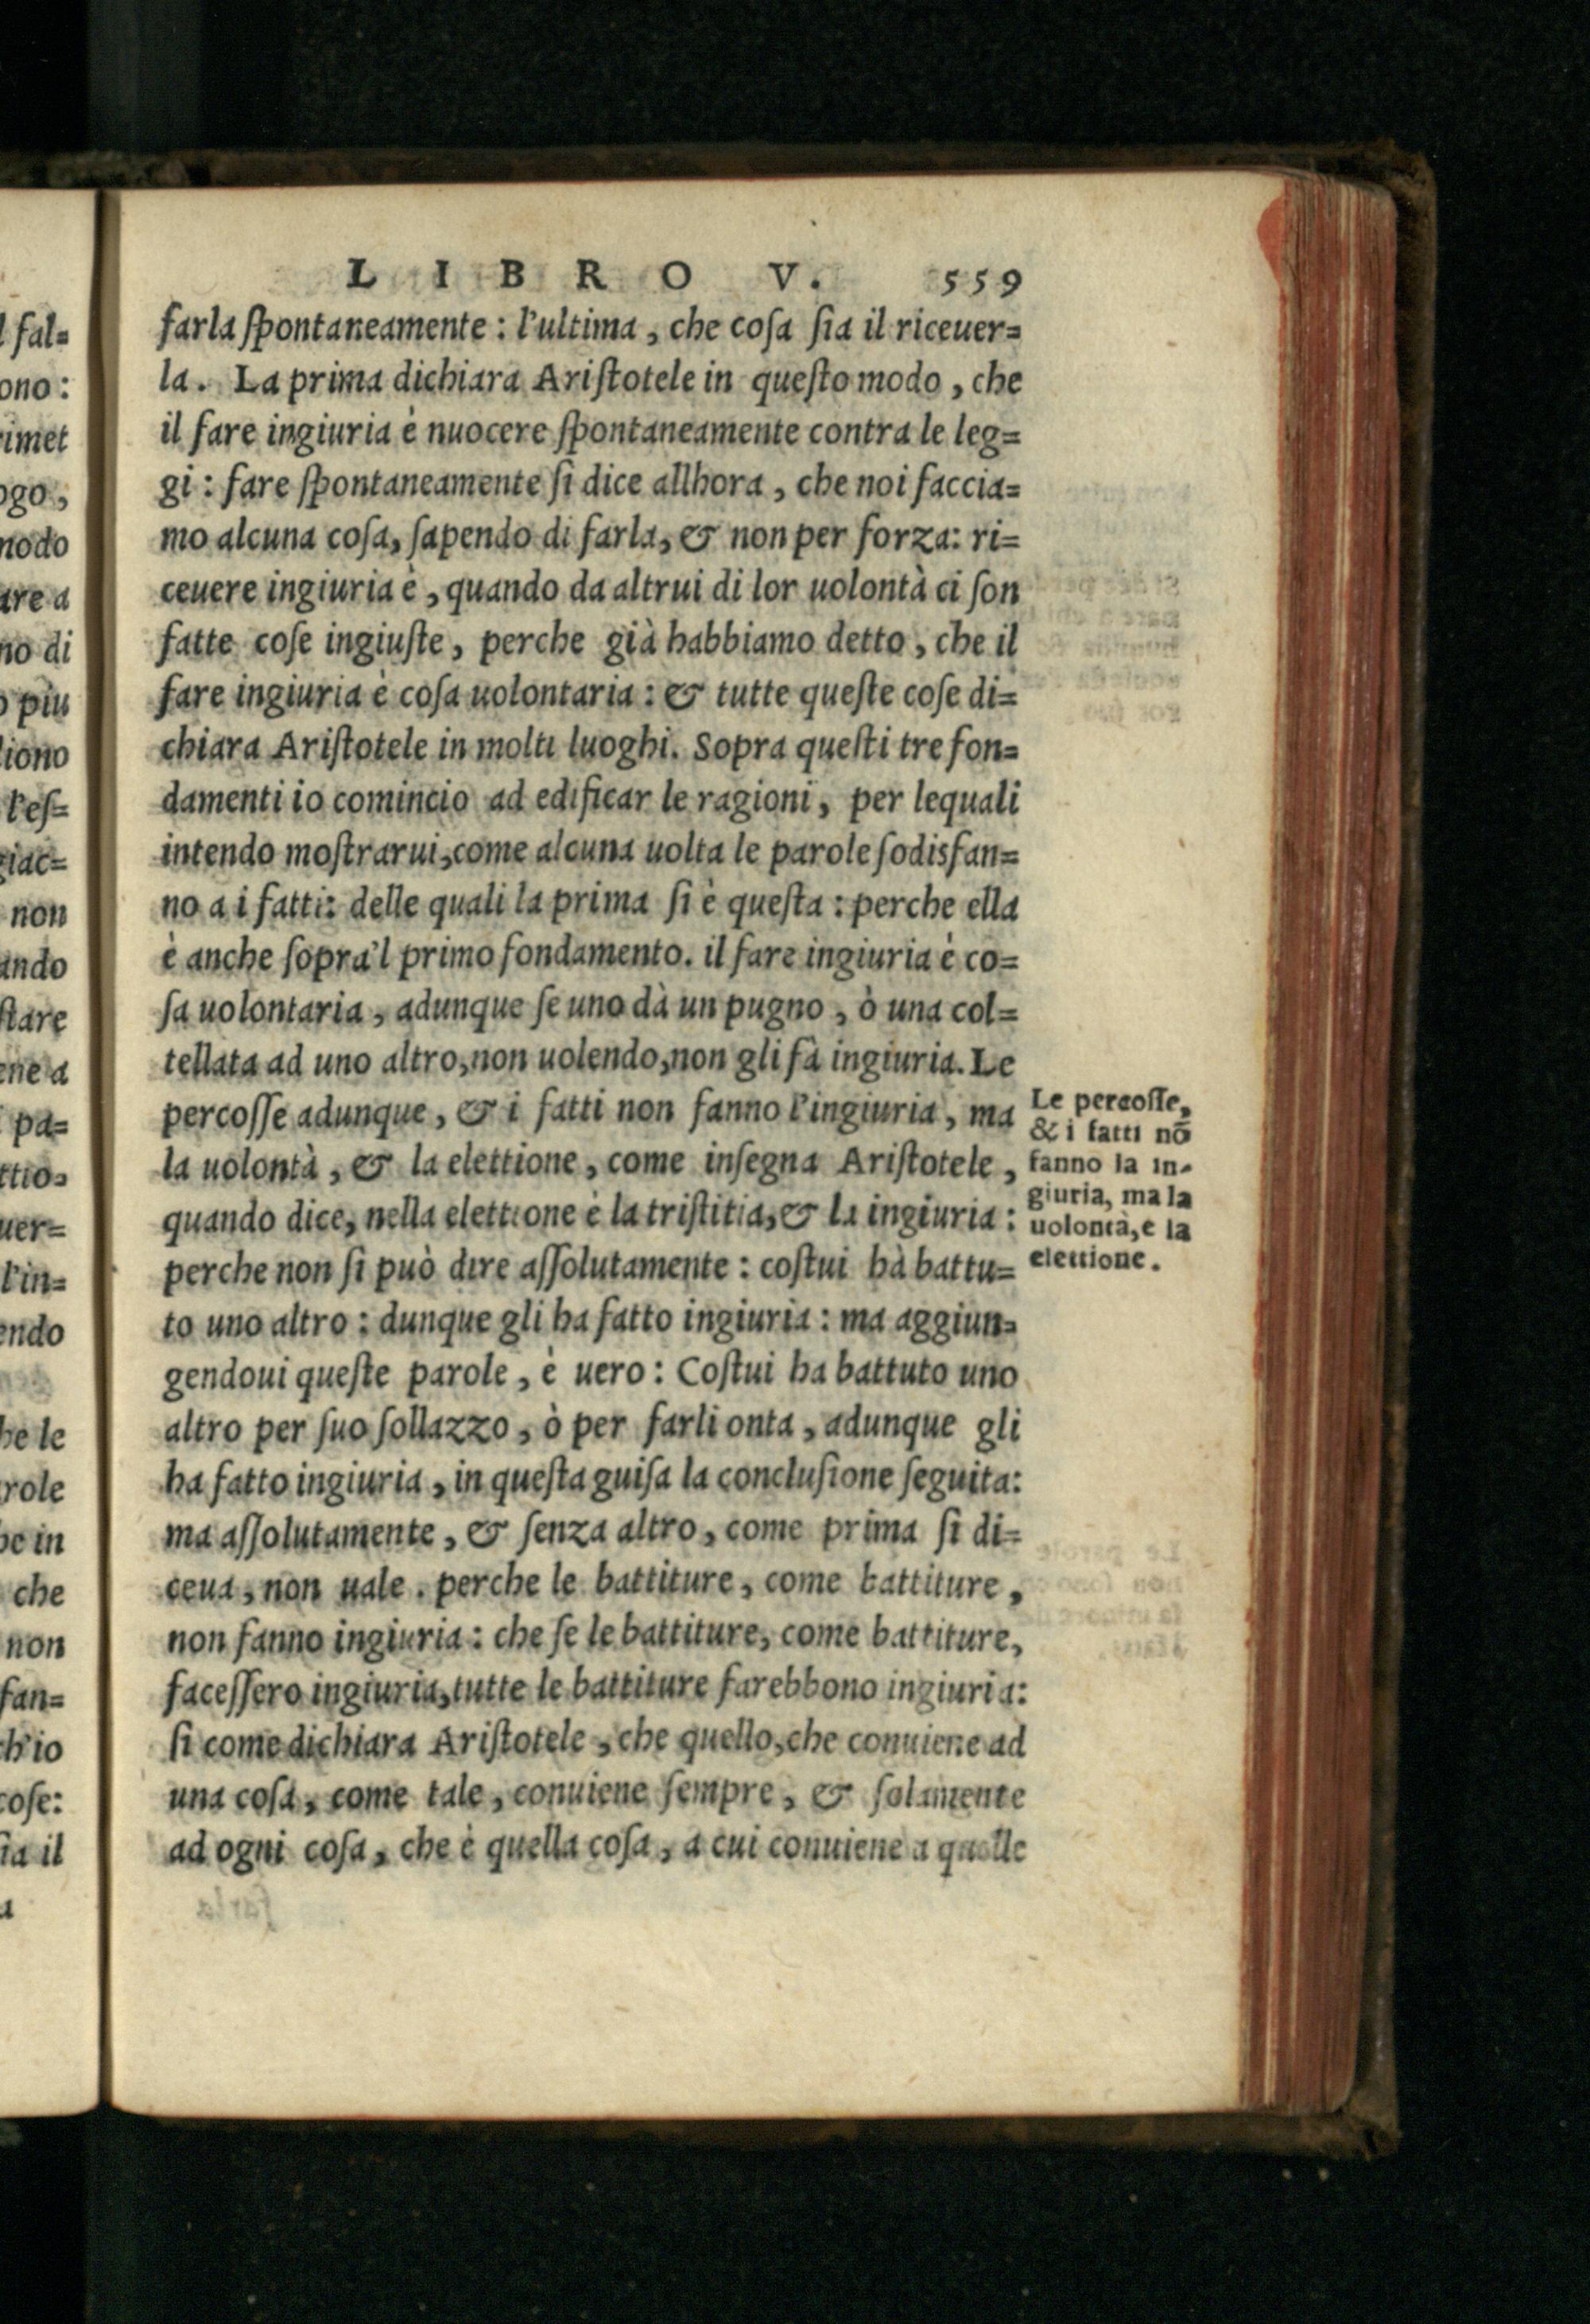 LIBRO V. 559
farla ſpontaneamente : l'ultima , che coſa ſia il riceuer=
la. La prima dichiara Ariſtotele in queſto modo , che
il fare ingiuria è nuocere ſpontaneamente contra le leg=
gi : fare ſpontaneamente ſi dice allhora , che noi faccia=
mo alcuna coſa, ſapendo di farla, & non per forza: ri=
ceuere ingiuria è , quando da altrui di lor uolontà ci ſon
fatte coſe ingiuſte, perche già habbiamo detto , che il
fare ingiuria è coſa uolontaria : & tutte queſte coſe di=
chiara Ariſtotele in molti luoghi. Sopra queſti tre fon=
damenti io comincio ad edificar le ragioni, per lequali
intendo moſtrarui,come alcuna uolta le parole ſodisfan=
no a i fatti: delle quali la prima ſi è queſta : perche ella
è anche ſopra'l primo fondamento. il fare ingiuria è co=
ſa uolontaria , adunque ſe uno dà un pugno , ò una col=
tellata ad uno altro,non uolendo,non gli fà ingiuria. Le
percoſſe adunque , & i fatti non fanno l'ingiuria , ma
la uolontà , & la elettione , come inſegna Ariſtotele ,
quando dice, nella elettione è la triſtitia,& la ingiuria :
perche non ſi può dire aſſolutamente : coſtui hà battu=
to uno altro : dunque gli ha fatto ingiuria : ma aggiun=
gendoui queſte parole , è uero : Coſtui ha battuto uno
altro per ſuo ſollazzo , ò per farli onta , adunque gli
ha fatto ingiuria , in queſta guiſa la concluſione ſeguita:
ma aſſolutamente , & ſenza altro , come prima ſi di=
ceua , non uale . perche le battiture , come battiture ,
non fanno ingiuria : che ſe le battiture, come battiture,
faceſſero ingiuria,tutte le battiture farebbono ingiuria:
ſi come dichiara Ariſtotele , che quello,che conuiene ad
una coſa , come tale , conuiene ſempre , & ſolamente
ad ogni coſa , che è quella coſa , a cui conuiene a quelle
Le percoſſe,
& i fatti nō
fanno la in-
giuria, ma la
uolontà, e la
elettione.
l fal=
ono :
rimet
ogo ,
modo
are a
no di
o più
liono
l'eſ=
giac=
non
ando
ſtare
ene a
pa=
ttio=
uer=
l'in=
endo
he le
role
he in
che
non
fan=
ch'io
coſe:
ſia il